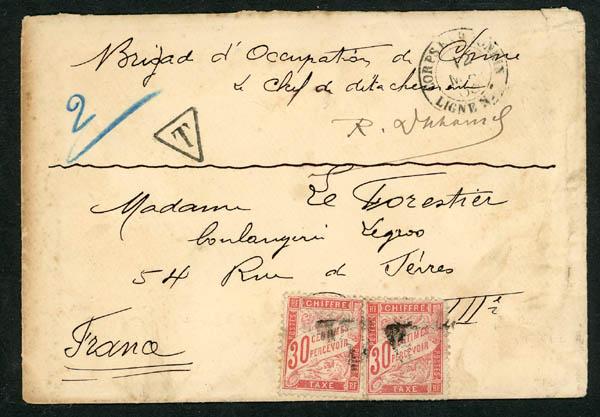 Brigad d'Occupation de Chine
Le chef de détachement
2
T
LIGNE N
Madame Le Forestier
boulangerie Legros
54 Rue de
France
CHIFFRE
RF
POSTES
30 CENTIMES
A PERCEVOIR
TAXE
RF
CHIFFRE
RF
POSTES
30 CENTIMES
A PERCEVOIR
TAXE
RF